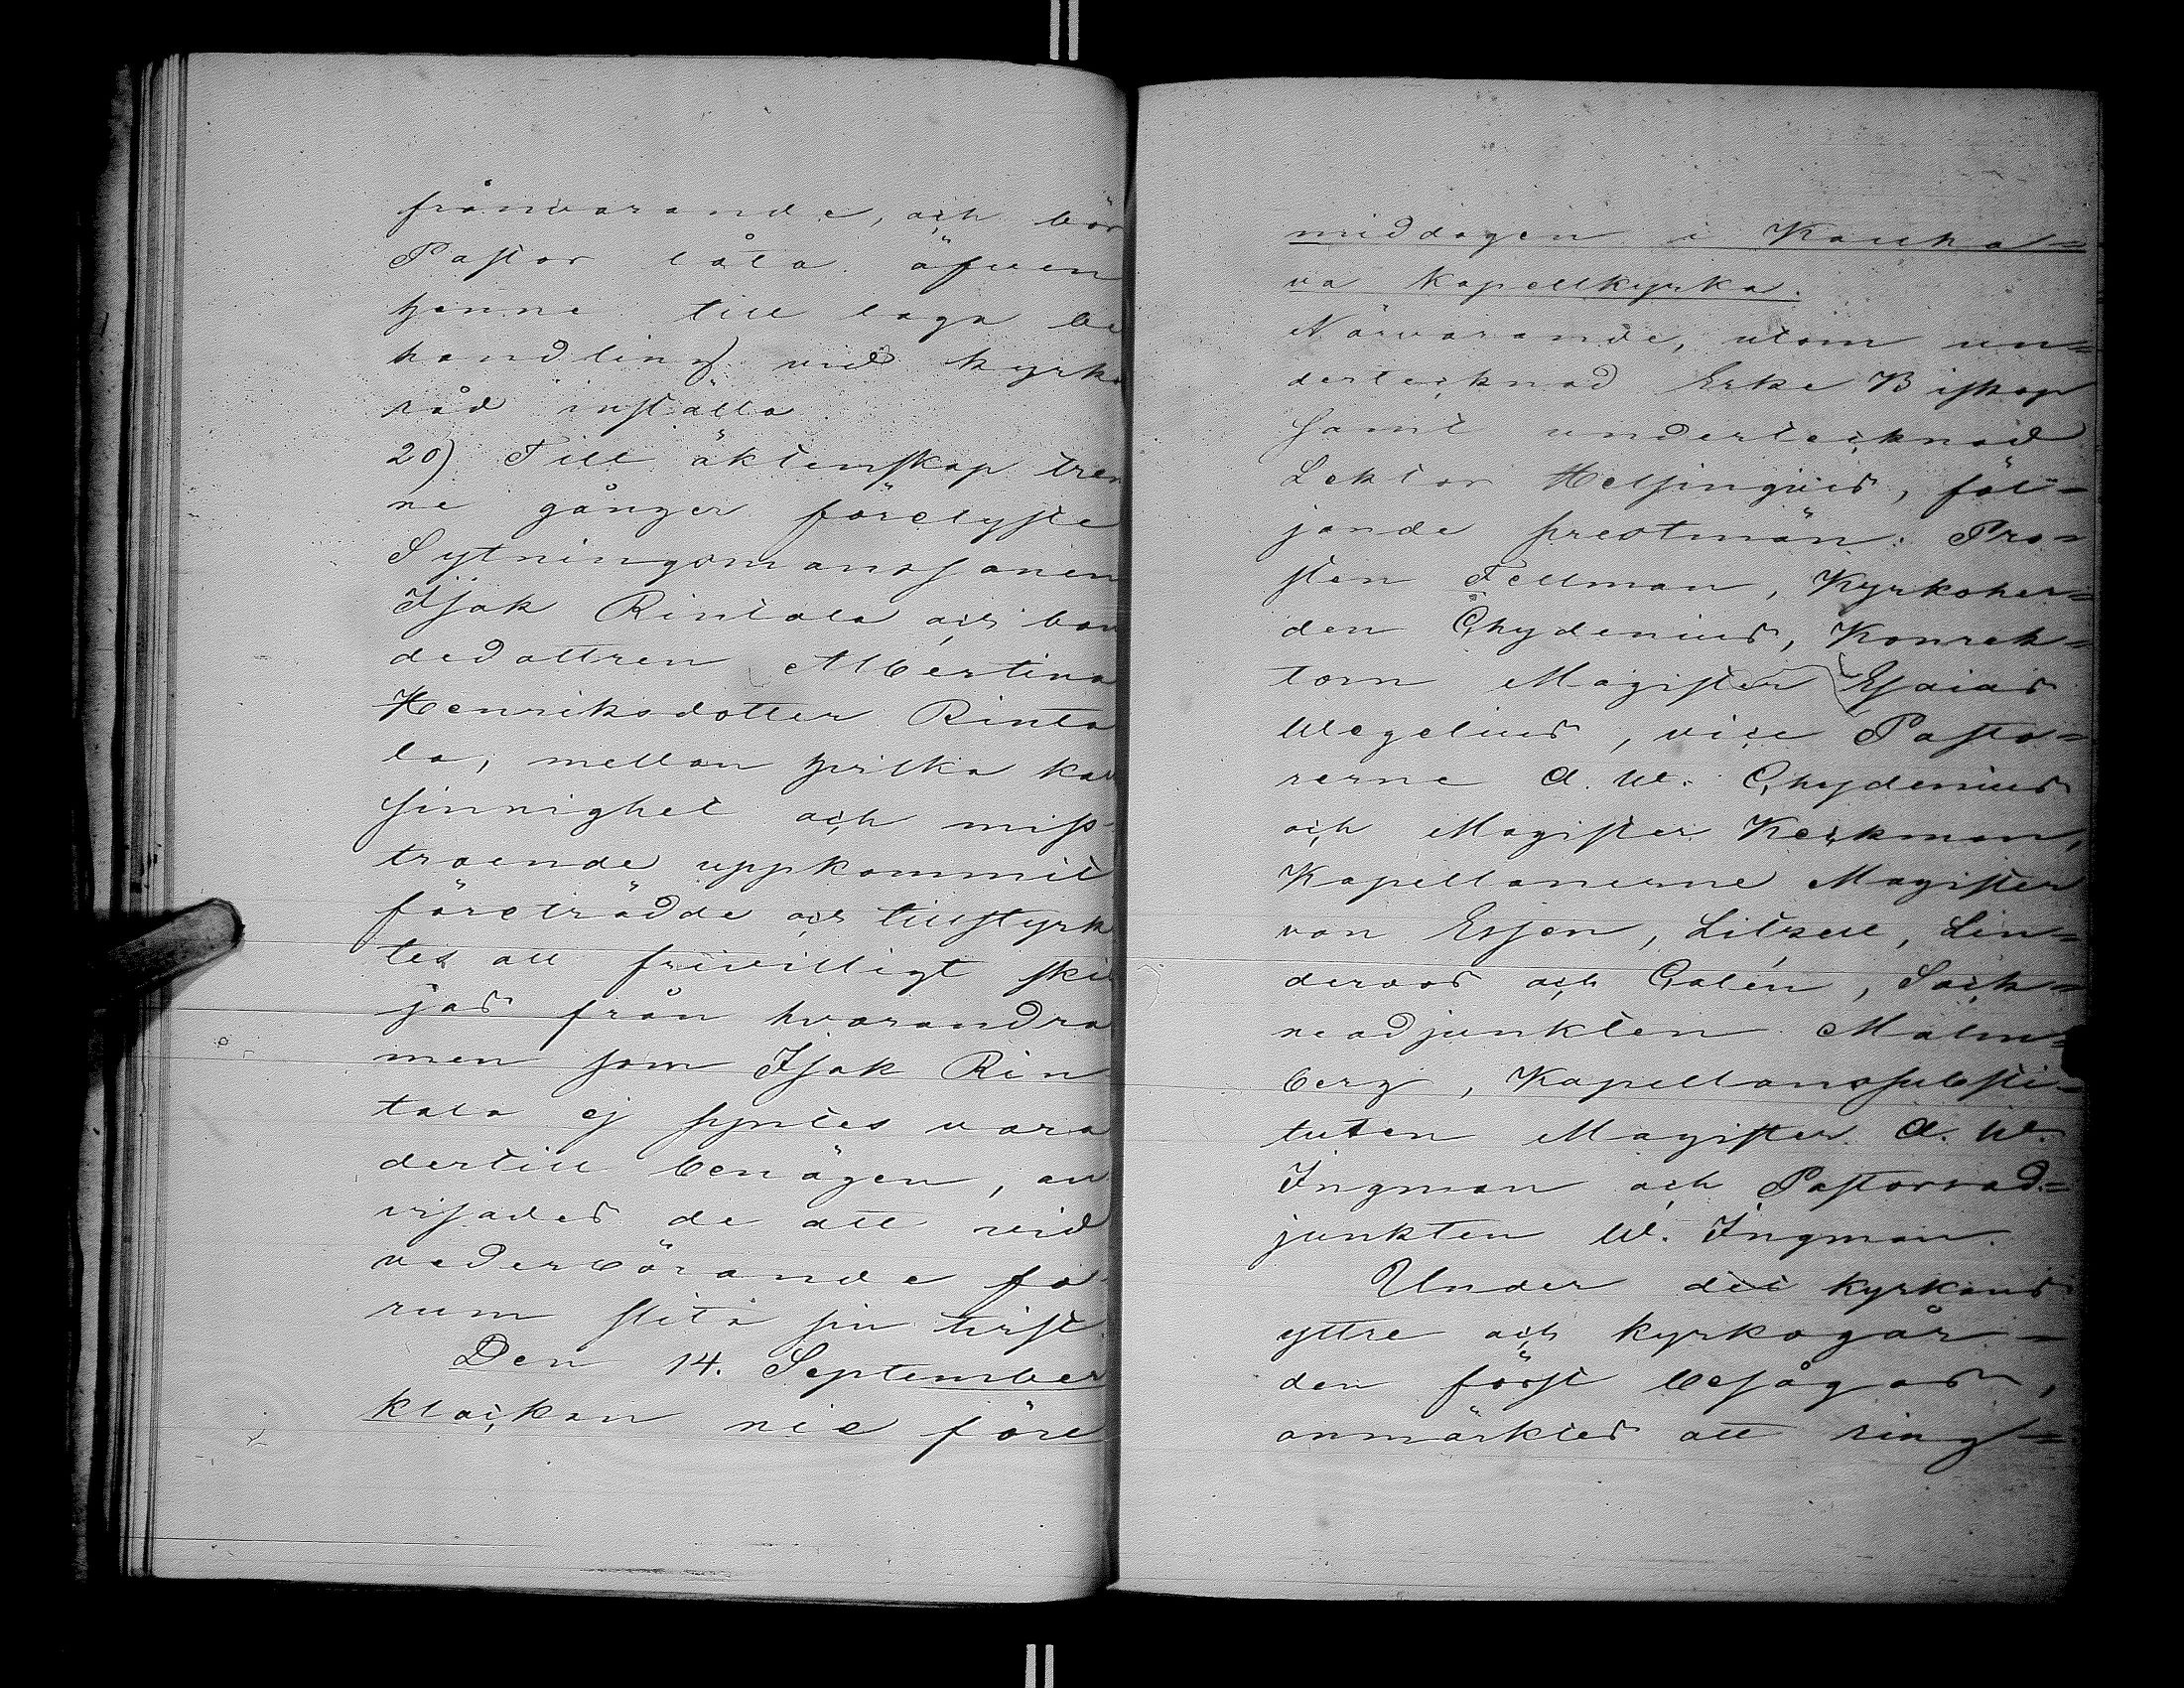 frånvarande, och bör
Pastor låta äfven
henne till laga be
handling vid kyrko
råd inställa.
20) Till äktenskap tren
ne gånger förelyste
Sytningsmanssonen
Isak Rintala och bon
dedottren Albertina
Henriksdotter Rinta
la, mellan hvilka kall
sinnighet och miss-
troende uppkommit
företrädde och tillstyrk
tes att frivilligt skil
jas från hvarandra
men som Isak Rin
tala ej syntes vara
dertill benägen, an
visades de att vid
vederbörande fo-
rum slita sin tvist.
Den 14. September
klockan nie före
middagen i Kauha=
va kapellkyrka.
Närvarande, utom un=
dertecknad Erke Biskop
samt undertecknad
Lektor Helsingius, föl=
jande prestmän: Pro=
sten Fellman, Kyrkoher=
den Chydenius, Konrek=
torn Magister Esaias
Wegelius, vice Pasto=
rerne A. W. Chydenius
och Magister Keckman,
Kapellanerne Magister
von Essen, Litzell, Lin=
deroos och Calén, Sock=
neadjunkten Malm=
berg, Kapellanssubsti=
tuten Magister A. W.
Ingman och Pastorsad=
junkten W. Ingman.
Under det kyrkans
yttre och kyrkogår=
den först besågos,
anmärktes att ring=